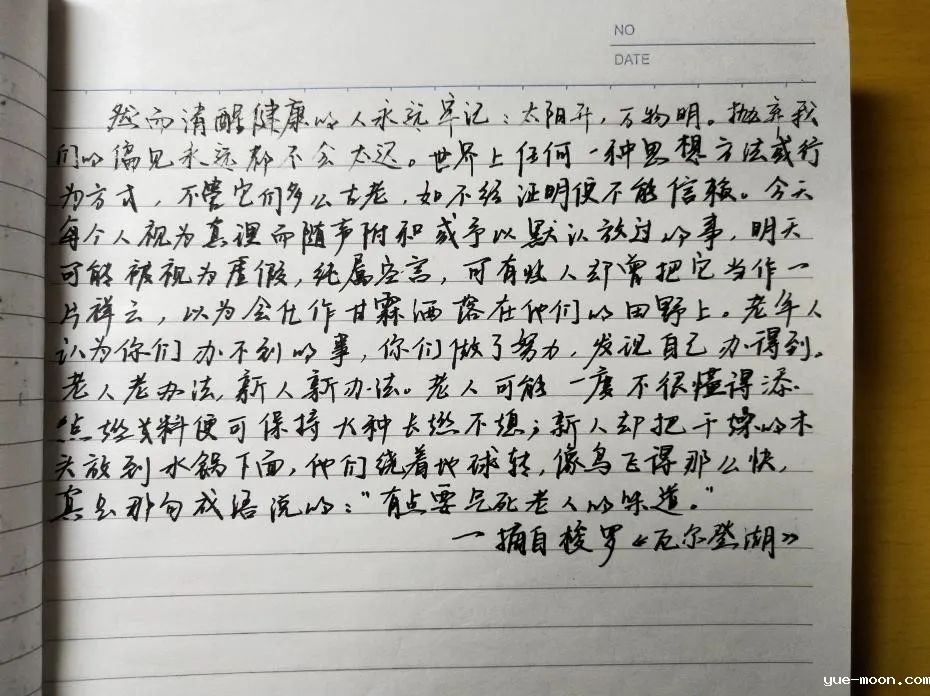 NO
DATE
然而清醒健康的人永远牢记:太阳升,万物明。抛弃我
们的偏见永远都不会太迟。世界上任何一种思想方法或行
为方式,不管它们多么古老,如不经证明便不能信赖。今天
每个人视为真理而随声附和或予以默认放过的事,明天
可能被视为虚假,纯属空言,可有些人却曾把它当作一
片祥云,以为会化作甘霖洒落在他们的田野上。老年人
认为你们办不到的事,你们做了努力,发现自己办得到。
老人老办法,新人新办法。老人可能一度不很懂得添
点燃料便可保持火种长燃不熄;新人却把干燥的木
头放到水锅下面,他们绕着地球转,像鸟飞得那么快,
真是那句成语说的:"有点要气死老人的味道。"
—摘自梭罗《瓦尔登湖》
yue-moon.com